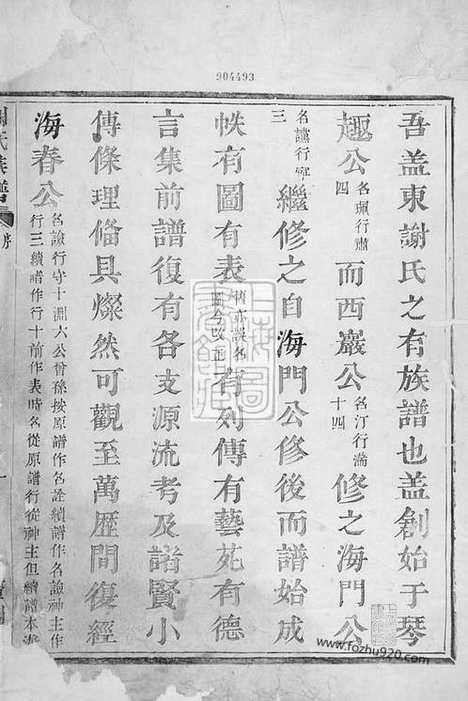 904493
吾盖東謝氏之有族譜也盖創始于琴
趣公名珮行肅四而西巖公名汀行滿十四修之海門公
名讜行守三繼修之自海門公修後而譜始成
帙有圖有表舊亦誤名圖今改正有列傳有藝苑有德
言集前譜復有各支源流考及諸賢小
傳條理備具燦然可觀至萬歷間復經
海春公名譣行守十淵六公曾孫按原譜作名詮續譜作名譣神主作行三續譜作行十前作表時名從原譜行從神主但續譜本海
謝氏族譜 序
www.fozhu920.com